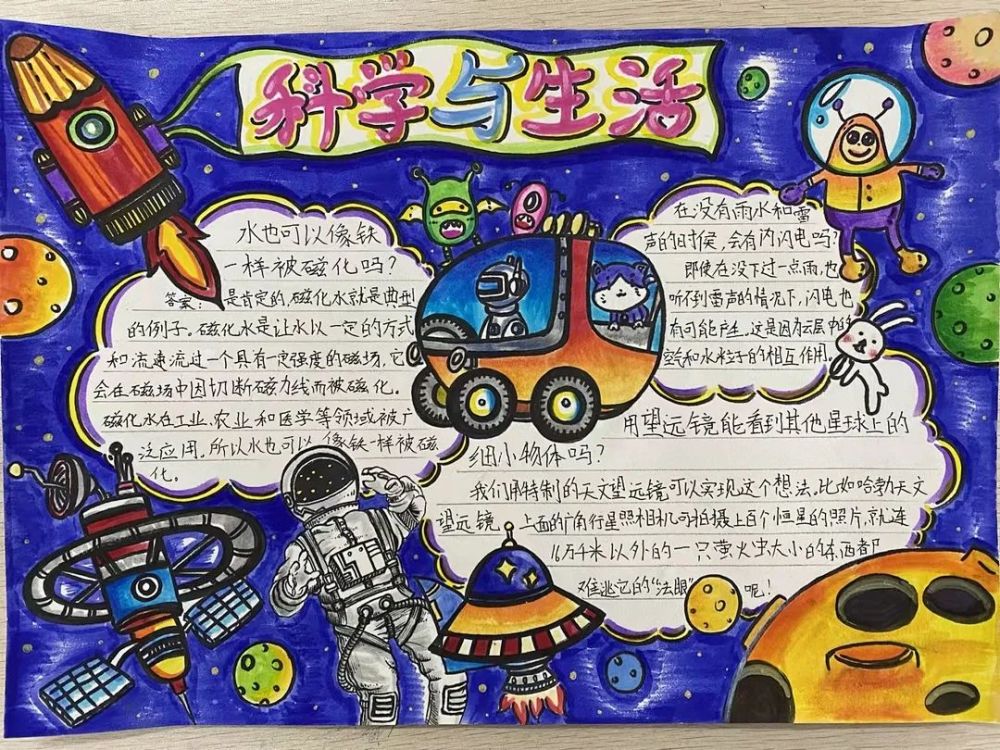 科学与生活
水也可以像铁
一样被磁化吗?
答案:是肯定的,磁化水就是典型
的例子。磁化水是让水以一定的方式
和流速流过一个具有一定强度的磁场,它
会在磁场中因切断磁力线而被磁化。
磁化水在工业、农业和医学等领域被广
泛应用。所以水也可以像铁一样被磁
化。
在没有雨水和雷
声的时候,会有闪电吗?
即使在没下过一点雨,也
听不到雷声的情况下,闪电也
有可能产生。这是因为云层中的
和水粒子的相互作用。
用望远镜能看到其他星球上的
细小物体吗?
我们用特制的天文望远镜可以实现这个想法。比如哈勃天文
望远镜,上面的广角行星照相机可拍摄上百个恒星的照片,就连
16万千米以外的一只萤火虫大小的东西都
难逃它的“法眼”呢!